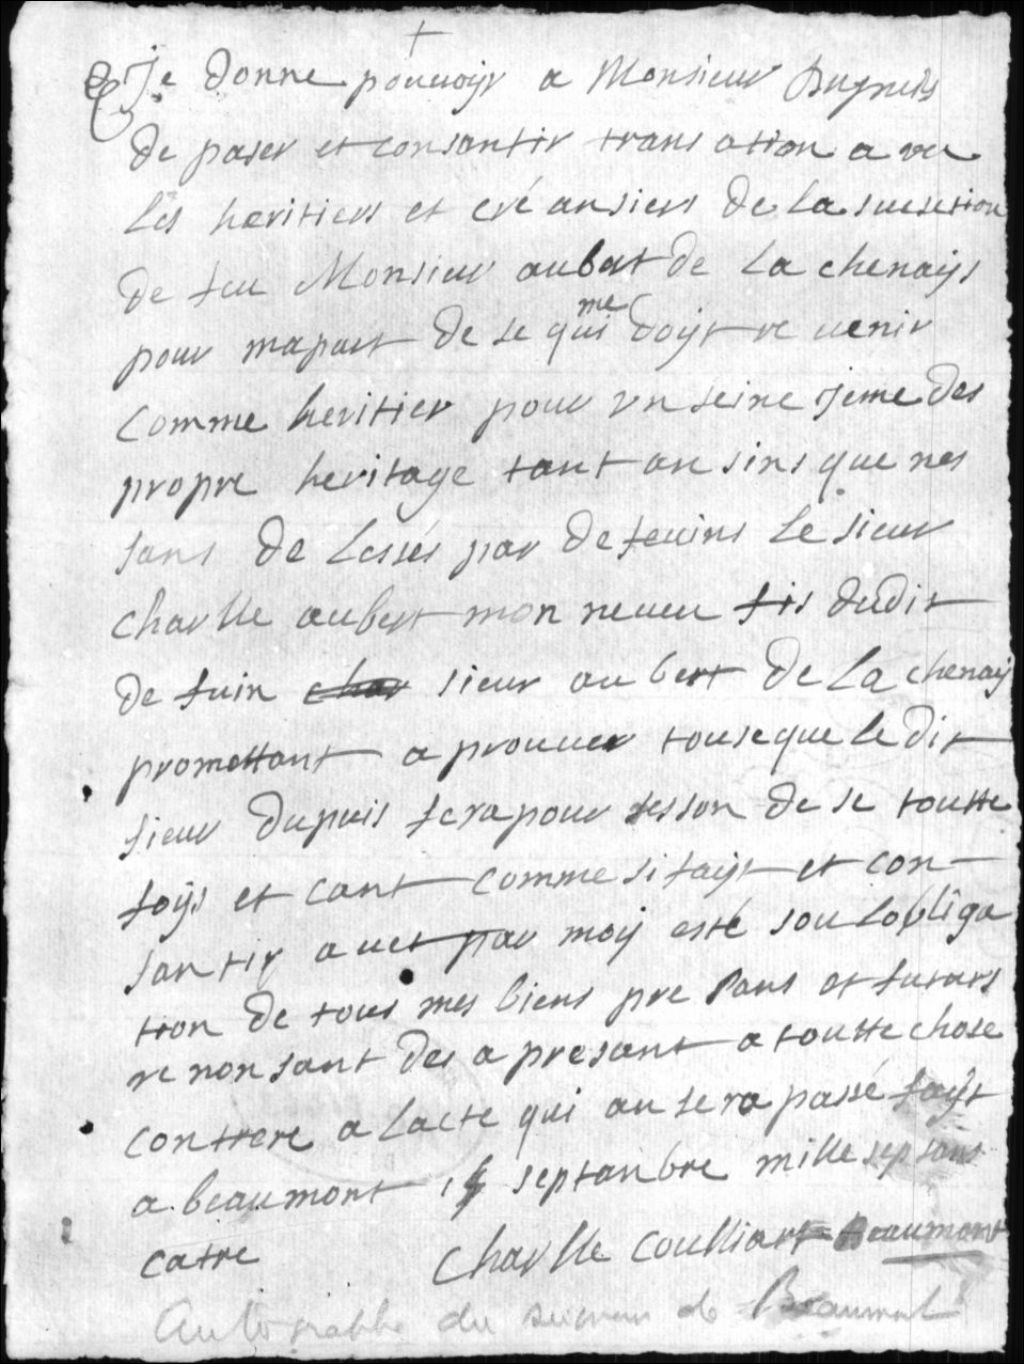 +
Je donne pouuoyr a Monsieur Dupuis
de paser et consantir transation a vec
les heritiers et cré ansiers de la suesetion
de feu Monsieur aubert de la chenays
pour mapart de se qui me doyt re uenir
comme heritier pour vn seine jeme des
propre heritage tant ansins que nes
sans de lessés par defeuins le sieur
charlle aubert mon neueu fis dudit
de fuin char sieur au bert de la chenay
promettant a prouuer tousequeledit
sieur dupuis fera pour sesson de se toutte
foys et cant comme si fayt et con-
santir auet par moy esté sou lobliga
tion de tous mes biens pre sans et futurs
re non sant des a presant a toutte chose
contrere a lacte qui an sera passé fayt
a beaumont septanbre mille sep sans
catre charlle coulliart Beaumont
Autographe du seigneur de Beaumont